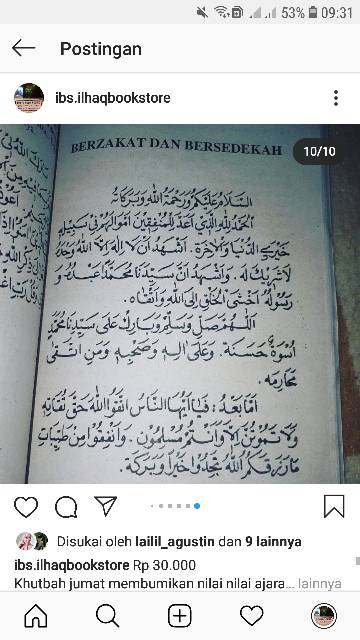 53% 09:31
Postingan
ibs.ilhaqbookstore
10/10
BERZAKAT DAN BERSEDEKAH
السَّلَامُ عَلَيْكُمْ وَرَحْمَةُ اللهِ وَبَرَكَاتُهُ
اَلْحَمْدُ لِلّٰهِ الَّذِي أَعَدَّ لِلْمُنْفِقِيْنَ أَمْوَالَهُمْ فِي سَبِيْلِهِ
خَيْرَيِ الدُّنْيَا وَالْآخِرَةِ. أَشْهَدُ أَنْ لَا إِلٰهَ إِلَّا اللهُ وَحْدَهُ
لَا شَرِيْكَ لَهُ. وَأَشْهَدُ أَنَّ سَيِّدَنَا مُحَمَّدًا عَبْدُهُ وَ
رَسُوْلُهُ أَخْشَى الْخَلْقِ إِلَى اللهِ وَأَتْقَاهُ.
اَللّٰهُمَّ صَلِّ وَسَلِّمْ وَبَارِكْ عَلَى سَيِّدِنَا مُحَمَّدٍ
أُسْوَةٌ حَسَنَةٌ. وَعَلَى آلِهِ وَصَحْبِهِ وَمَنِ اتَّقَى
مَحَارِمَهُ.
أَمَّا بَعْدُ: فَيَا أَيُّهَا النَّاسُ اتَّقُوا اللهَ حَقَّ تُقَاتِهِ
وَلَا تَمُوْتُنَّ إِلَّا وَأَنْتُمْ مُسْلِمُوْنَ. وَأَنْفِقُوْا مِنْ طَيِّبَاتِ
مَا رَزَقَكُمُ اللهُ تَجِدُوْا خَيْرًا وَبَرَكَةً.
Disukai oleh lailil_agustin dan 9 lainnya
ibs.ilhaqbookstore Rp 30.000
Khutbah jumat membumikan nilai nilai ajara... lainnya